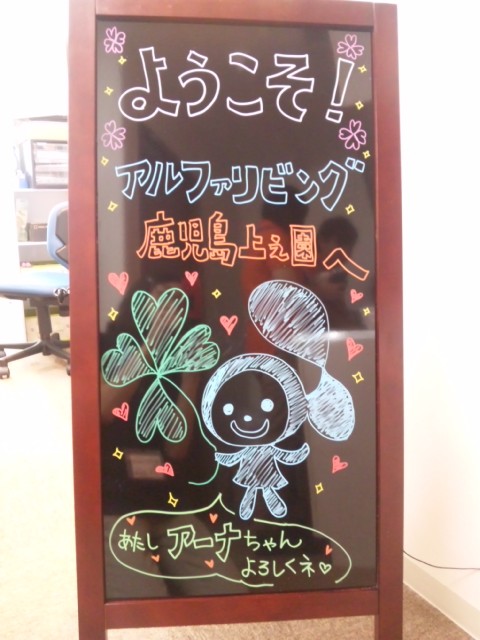 ようこそ！
アルファリビング
鹿児島上之園へ
あたし アーナちゃん
よろしくネ♡